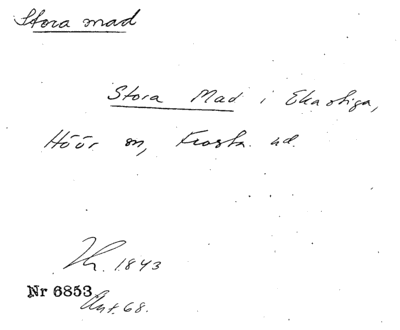 Stora mad
Stora Mad i Ekastiga,
Höör sn, Frosta hd.
1843
Nr 6853
Ant. 68.